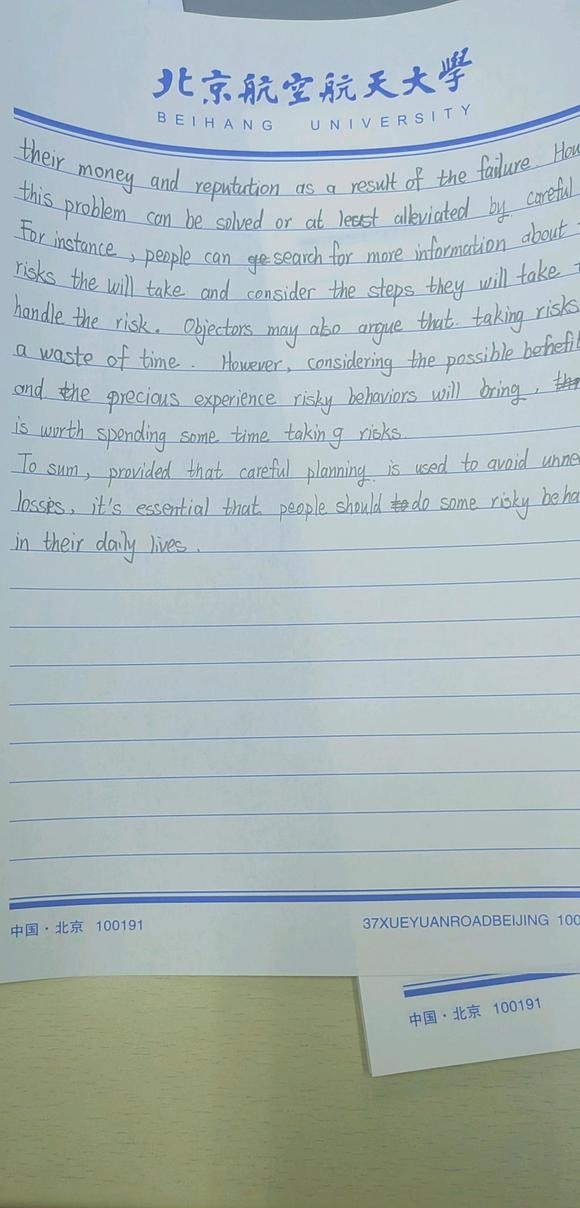 北京航空航天大學
BEIHANG UNIVERSITY
their money and reputation as a result of the failure. How
this problem can be solved or at least alleviated by careful
For instance, people can search for more information about
risks the will take and consider the steps they will take t
handle the risk. Objectors may also argue that taking risks
a waste of time. However, considering the possible benefit
and the precious experience risky behaviors will bring,
is worth spending some time taking risks.
To sum, provided that careful planning is used to avoid unne
losses, it's essential that people should do some risky beha
in their daily lives.
中国·北京 100191
37XUEYUANROADBEIJING 100
中国·北京 100191